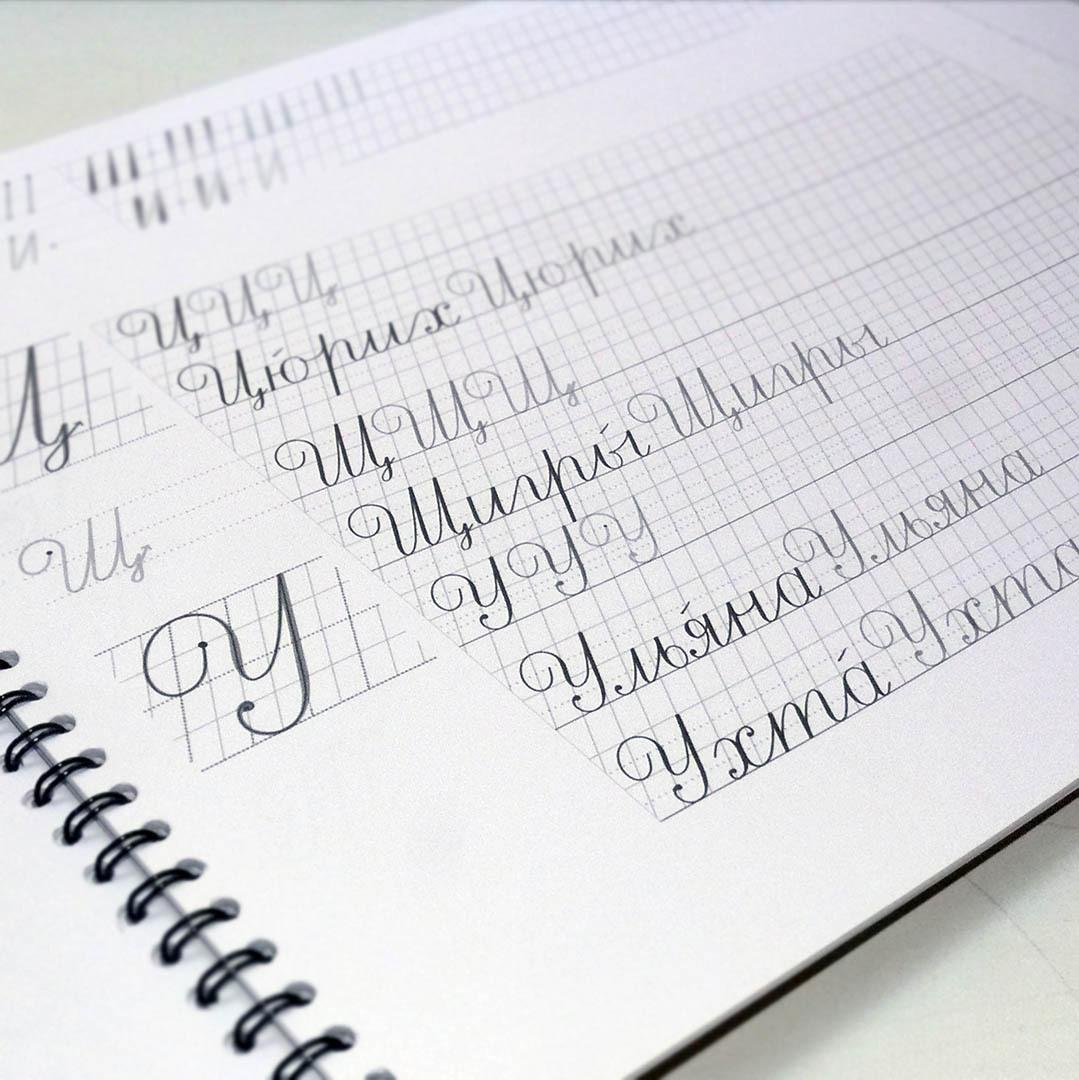 И И И
Ц Ц Ц
Цю́рих Цюрих
Щ Щ Щ
Щигры́ Щигры
Щ
У У У
У
Улья́на Ульяна
Ухта́ Ухта